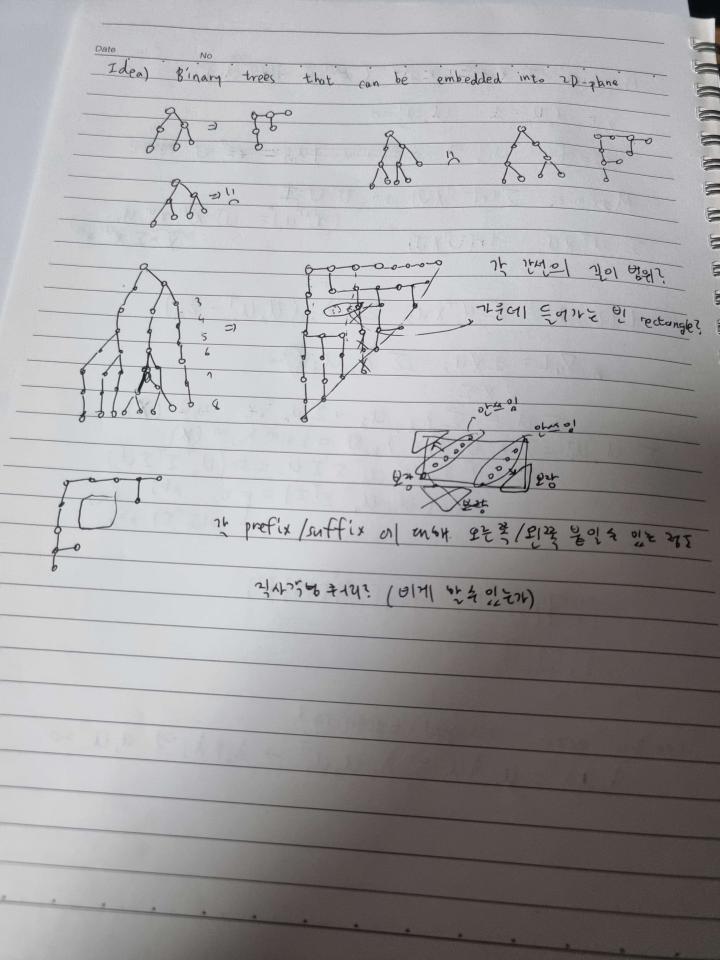 Date No
Idea) Binary trees that can be embedded into 2D-plane
각 간선의 길이 범위?
3
4
가운데 들어가는 빈 rectangle?
5
6
7
8
안쓰임
안쓰임
보장
보장
보장
각 prefix/suffix 에 대해 오른쪽/왼쪽 붙일 수 있는 정도
직사각형 처리? (비게 할 수 있는가)